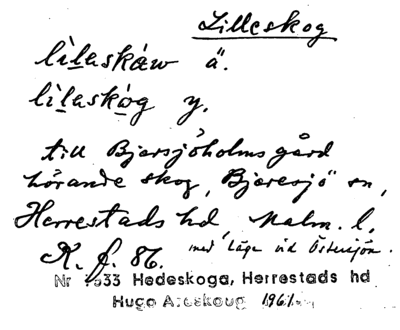 Lilleskog
lilaskáw ä.
lilaskòg y.
till Bjersjöholms gård
hörande skog, Bjäresjö sn,
Herrestads hd Malm. l.
K. f. 86. med läge vid Östersjön.
Nr 1933 Hedeskoga, Herrestads hd
Hugo Areskoug 1961